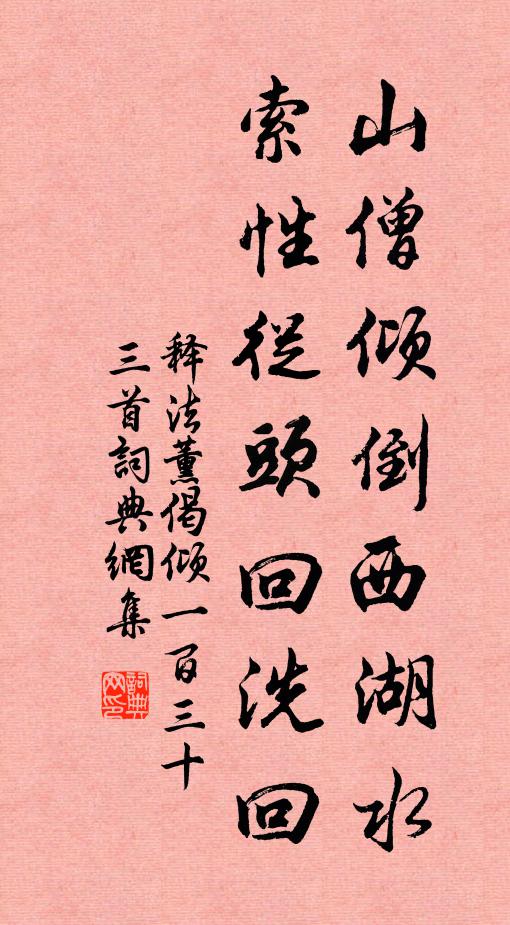 山僧倾倒西湖水
索性從頭回洗回
释法薰偈倾一百三十
三首詞典網集
詞典网印